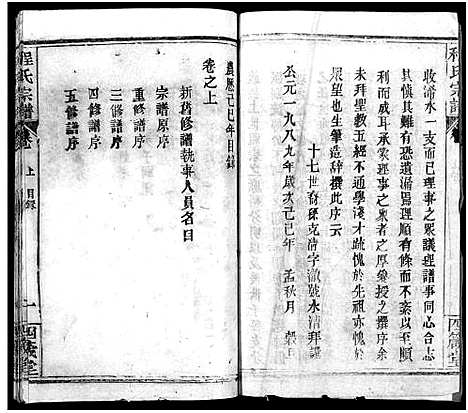 程氏宗譜
收浠水一支而已理事之眾議理譜事同心合志
其慎其難惟有恐遺漏畧理順有條而成
而行咸耳承眾理事之眾者之厚愛授之撰序余
未拜聖教五經不通學淺才疎愧於先祖亦愧於
眾望也生筆造辭撰此序云
十七世裔孫克清字澈號水清拜譔
公元一九八九年歲次己巳年 孟秋月 穀旦
四箴堂
程氏宗譜
卷上
目錄
一
四箴堂
農曆己巳年目錄
卷之上
新舊修譜執事人員名目
宗譜原序
重修譜序
三修譜序
四修譜序
五修譜序